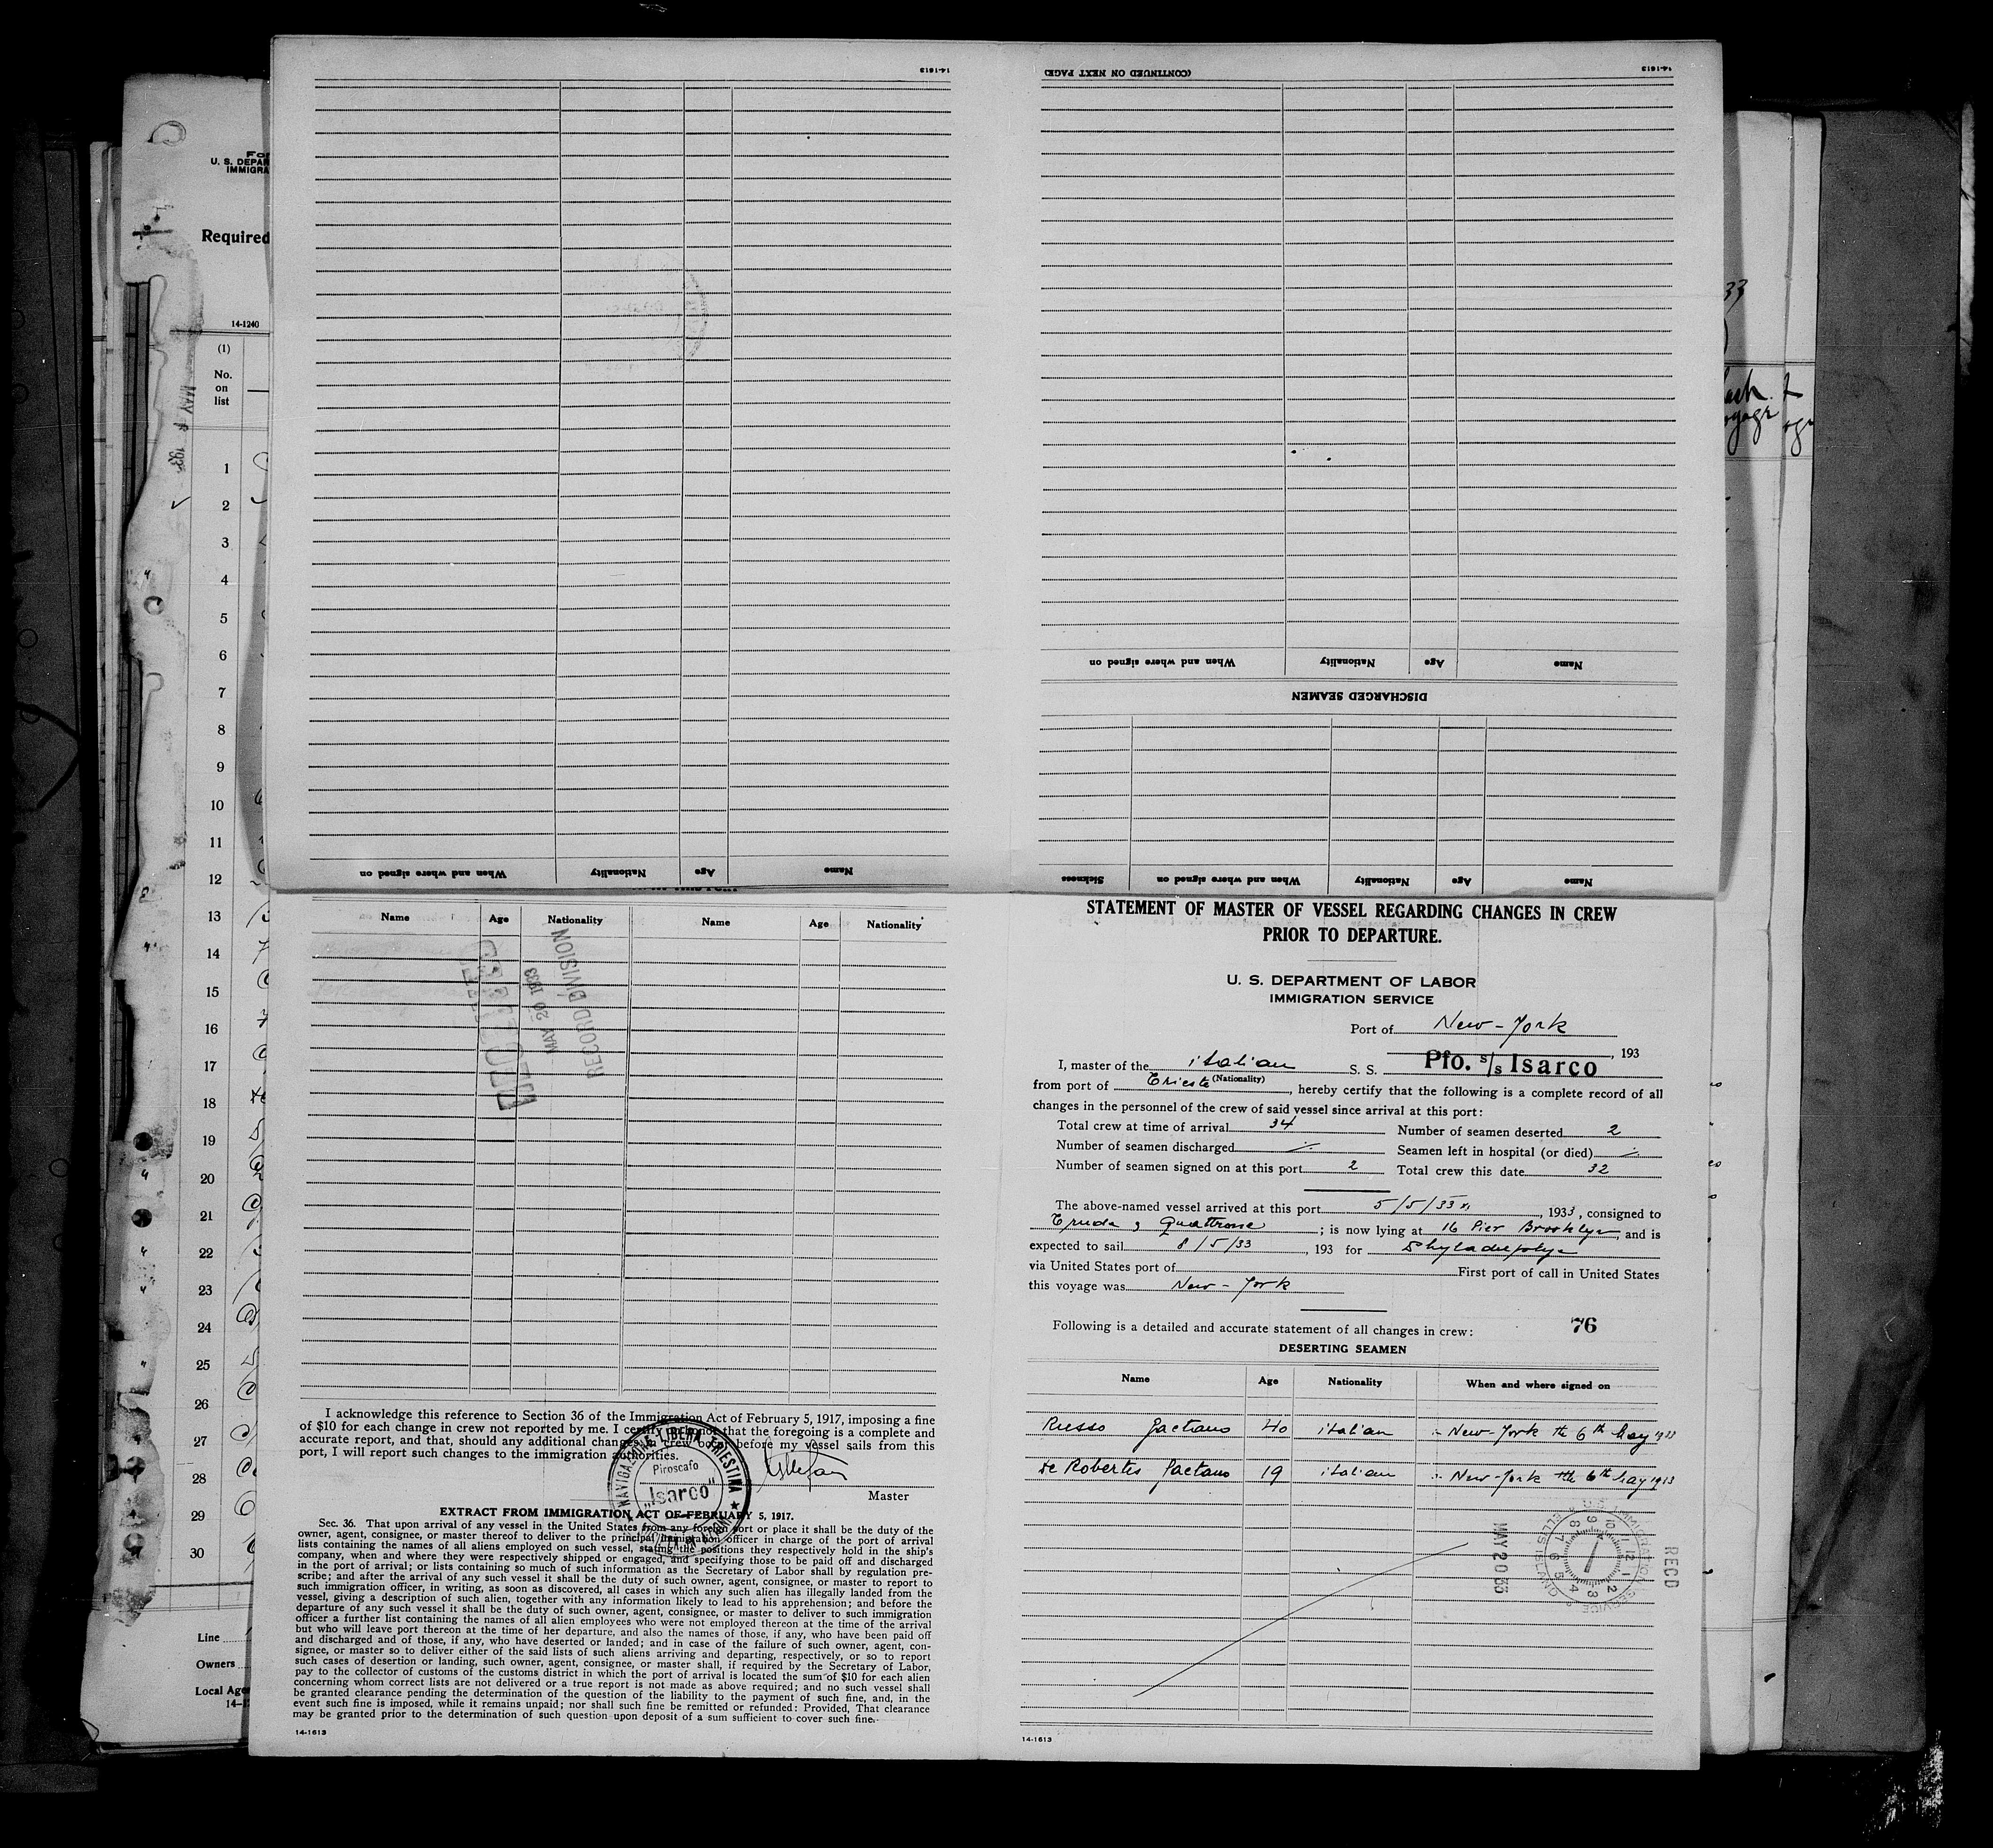 14-1613
(CONTINUED ON NEXT PAGE)
14-1613
When and where signed on Nationality Age Name
DISCHARGED SEAMEN
When and where signed on Nationality Age Name
Sickness When and where signed on Nationality Age Name
U. S. DEPAR
IMMIGRA
Required
14-1240
(1)
No.
on
list
1
2
3
4
5
6
7
8
9
10
11
12
13
14
15
16
17
18
19
20
21
22
23
24
25
26
27
28
29
30
Line
Owners
Local Age
33
Name Age Nationality Name Age Nationality
MAY 20 1933
RECORD DIVISION
I acknowledge this reference to Section 36 of the Immigration Act of February 5, 1917, imposing a fine
of $10 for each change in crew not reported by me. I certify on honor that the foregoing is a complete and
accurate report, and that, should any additional changes in crew occur before my vessel sails from this
port, I will report such changes to the immigration authorities.
NAVIGAZIONE LIBERA TRIESTINA
Piroscafo
"Isarco"
Master
EXTRACT FROM IMMIGRATION ACT OF FEBRUARY 5, 1917.
Sec. 36. That upon arrival of any vessel in the United States from any foreign port or place it shall be the duty of the
owner, agent, consignee, or master thereof to deliver to the principal immigration officer in charge of the port of arrival
lists containing the names of all aliens employed on such vessel, stating the positions they respectively hold in the ship's
company, when and where they were respectively shipped or engaged, and specifying those to be paid off and discharged
in the port of arrival; or lists containing so much of such information as the Secretary of Labor shall by regulation pre-
scribe; and after the arrival of any such vessel it shall be the duty of such owner, agent, consignee, or master to report to
such immigration officer, in writing, as soon as discovered, all cases in which any such alien has illegally landed from the
vessel, giving a description of such alien, together with any information likely to lead to his apprehension; and before the
departure of any such vessel it shall be the duty of such owner, agent, consignee, or master to deliver to such immigration
officer a further list containing the names of all alien employees who were not employed thereon at the time of the arrival
but who will leave port thereon at the time of her departure, and also the names of those, if any, who have been paid off
and discharged and of those, if any, who have deserted or landed; and in case of the failure of such owner, agent, con-
signee, or master so to deliver either of the said lists of such aliens arriving and departing, respectively, or so to report
such cases of desertion or landing, such owner, agent, consignee, or master shall, if required by the Secretary of Labor,
pay to the collector of customs of the customs district in which the port of arrival is located the sum of $10 for each alien
concerning whom correct lists are not delivered or a true report is not made as above required; and no such vessel shall
be granted clearance pending the determination of the question of the liability to the payment of such fine, and, in the
event such fine is imposed, while it remains unpaid; nor shall such fine be remitted or refunded: Provided, That clearance
may be granted prior to the determination of such question upon deposit of a sum sufficient to cover such fine.
14-1613
STATEMENT OF MASTER OF VESSEL REGARDING CHANGES IN CREW
PRIOR TO DEPARTURE.
U. S. DEPARTMENT OF LABOR
IMMIGRATION SERVICE
Port of New-York
, 193
I, master of the italian S. S. Pfo. s/s Isarco
(Nationality)
from port of Trieste, hereby certify that the following is a complete record of all
changes in the personnel of the crew of said vessel since arrival at this port:
Total crew at time of arrival 34 Number of seamen deserted 2
Number of seamen discharged Seamen left in hospital (or died)
Number of seamen signed on at this port 2 Total crew this date 32
The above-named vessel arrived at this port 5/5/33, 1933, consigned to
; is now lying at 16 Pier Brooklyn, and is
expected to sail 8/5/33, 193 for Phyladelphya
via United States port of First port of call in United States
this voyage was New-York
Following is a detailed and accurate statement of all changes in crew: 76
DESERTING SEAMEN
Name Age Nationality When and where signed on
Russo Gaetano 40 italian New-York th 6th May 1933
De Robertis Gaetano 19 italian New-York the 6th May 1933
RECD
MAY 20 33
U. S. IMMIGRATION SERVICE
ELLIS ISLAND
14-1613